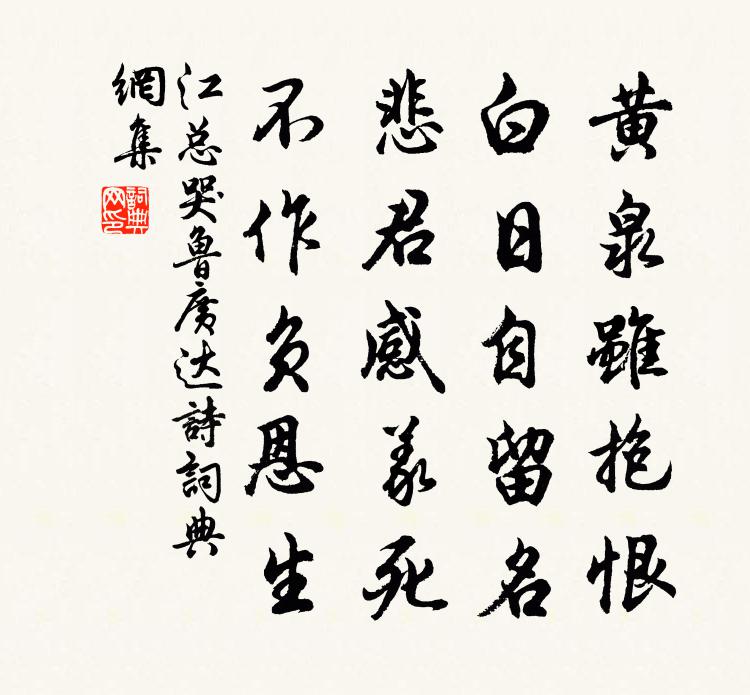 黄泉雖抱恨
白日自留名
悲君感義死
不作负恩生
江总哭魯廣达詩詞典
網集
詞典
网印